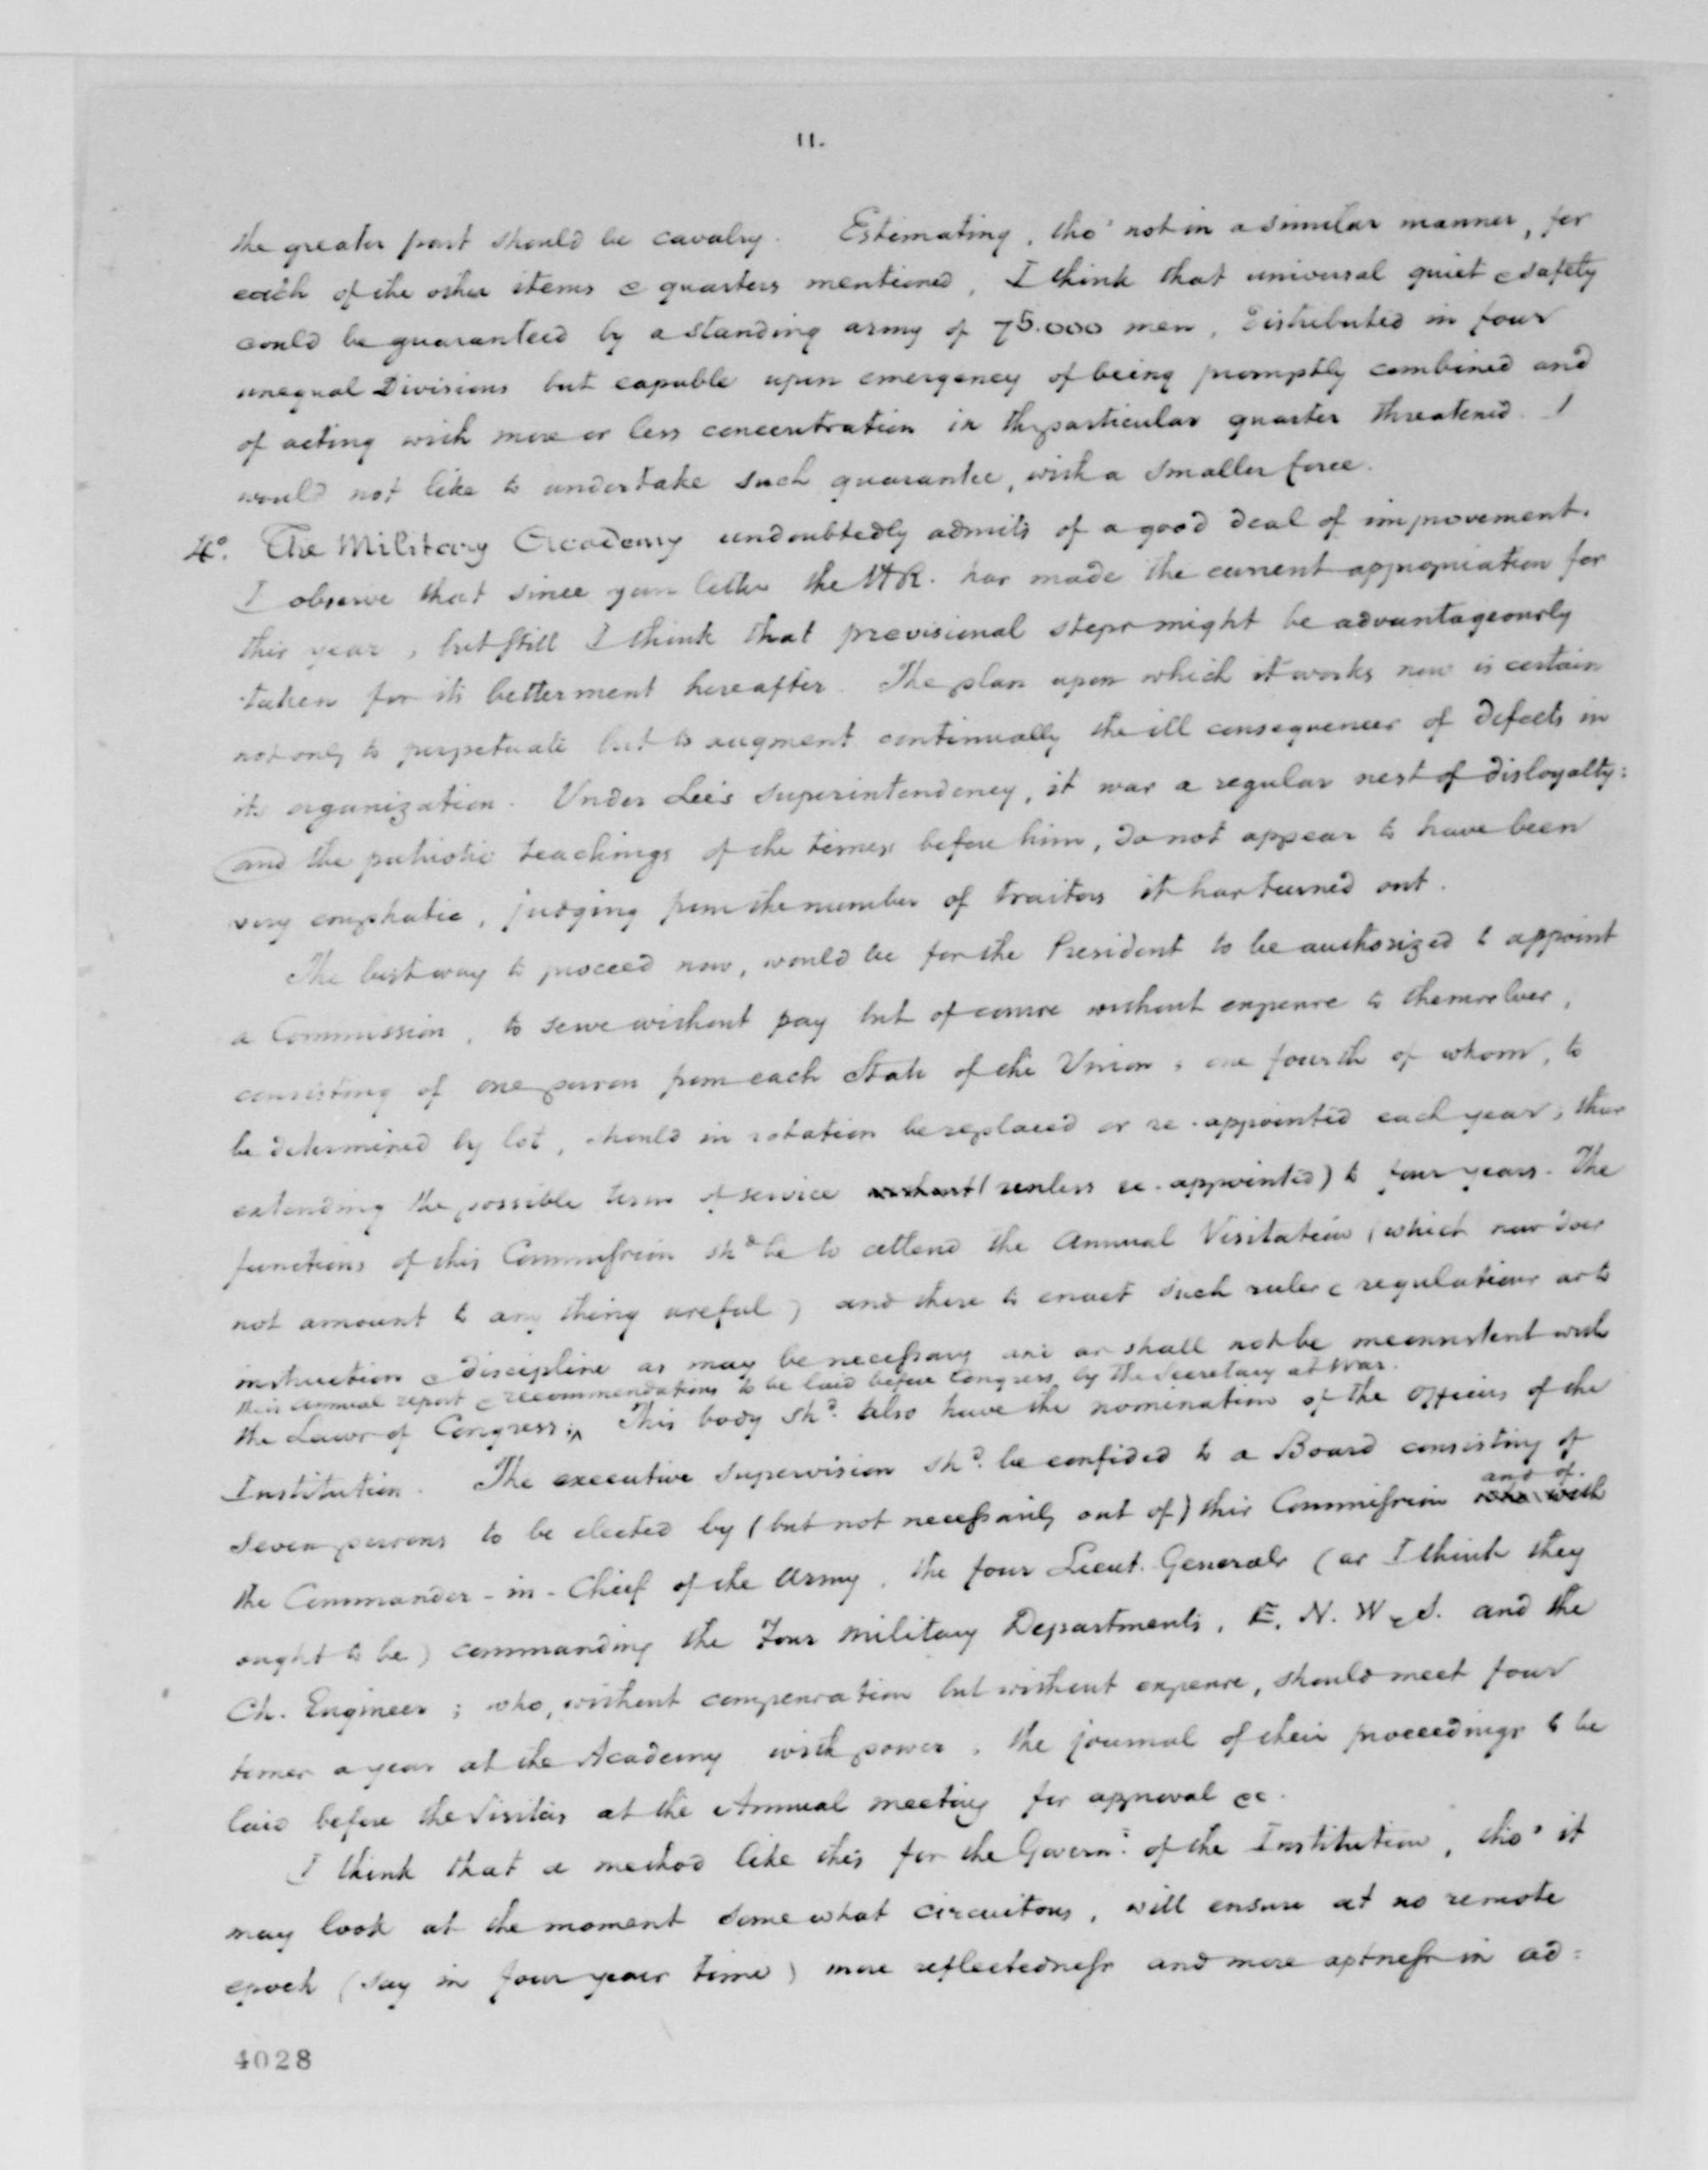 11.
the greater part should be cavalry. Estimating, tho' not in a similar manner, for
each of the other items & quarters mentioned, I think that universal quiet & safety
could be guaranteed by a standing army of 75.000 men, distributed in four
unequal Divisions but capable upon emergency of being promptly combined and
of acting with more or less concentration in the particular quarter threatened. I
would not like to undertake such guarantee, with a smaller force.
4º. The Military Academy undoubtedly admits of a good deal of improvement.
I observe that since your letter the H R. has made the current appropriation for
this year, but still I think that provisional steps might be advantageously
taken for its betterment hereafter. The plan upon which it works now is certain
not only to perpetuate but to augment continually the ill consequences of defects in
its organization. Under Lee's superintendency, it was a regular nest of disloyalty:
and the patriotic teachings of the times before him, do not appear to have been
very emphatic, judging from the number of traitors it has turned out.
The best way to proceed now, would be for the President to be authorized to appoint
a Commission, to serve without pay but of course without expense to themselves,
consisting of one person from each State of the Union; one fourth of whom, to
be determined by lot, should in rotation be replaced or re-appointed each year, thus
extending the possible term of service without (unless re-appointed) to four years. The
functions of this Commission shd be to attend the Annual Visitation (which now does
not amount to any thing useful) and there to enact such rules & regulations as to
instruction & discipline as may be necessary and as shall not be inconsistent with
their annual report & recommendations to be laid before Congress by the Secretary at War.
the Laws of Congress;^ This body shd. also have the nomination of the Officers of the
Institution. The executive supervision shd. be confided to a Board consisting of
and of.
seven persons to be elected by (but not necessarily out of) this Commission who with
the Commander-in-Chief of the Army, the four Lieut. Generals (as I think they
ought to be) commanding the Four Military Departments, E. N. W & S. and the
Ch. Engineer; who, without compensation but without expense, should meet four
times a year at the Academy with power, the journal of their proceedings to be
laid before the Visitors at the Annual meeting for approval &c.
I think that a method like this for the Governt. of the Institution, tho' it
may look at the moment somewhat circuitous, will ensure at no remote
epoch (say in four years time) more reflectedness and more aptness in ad=
4028